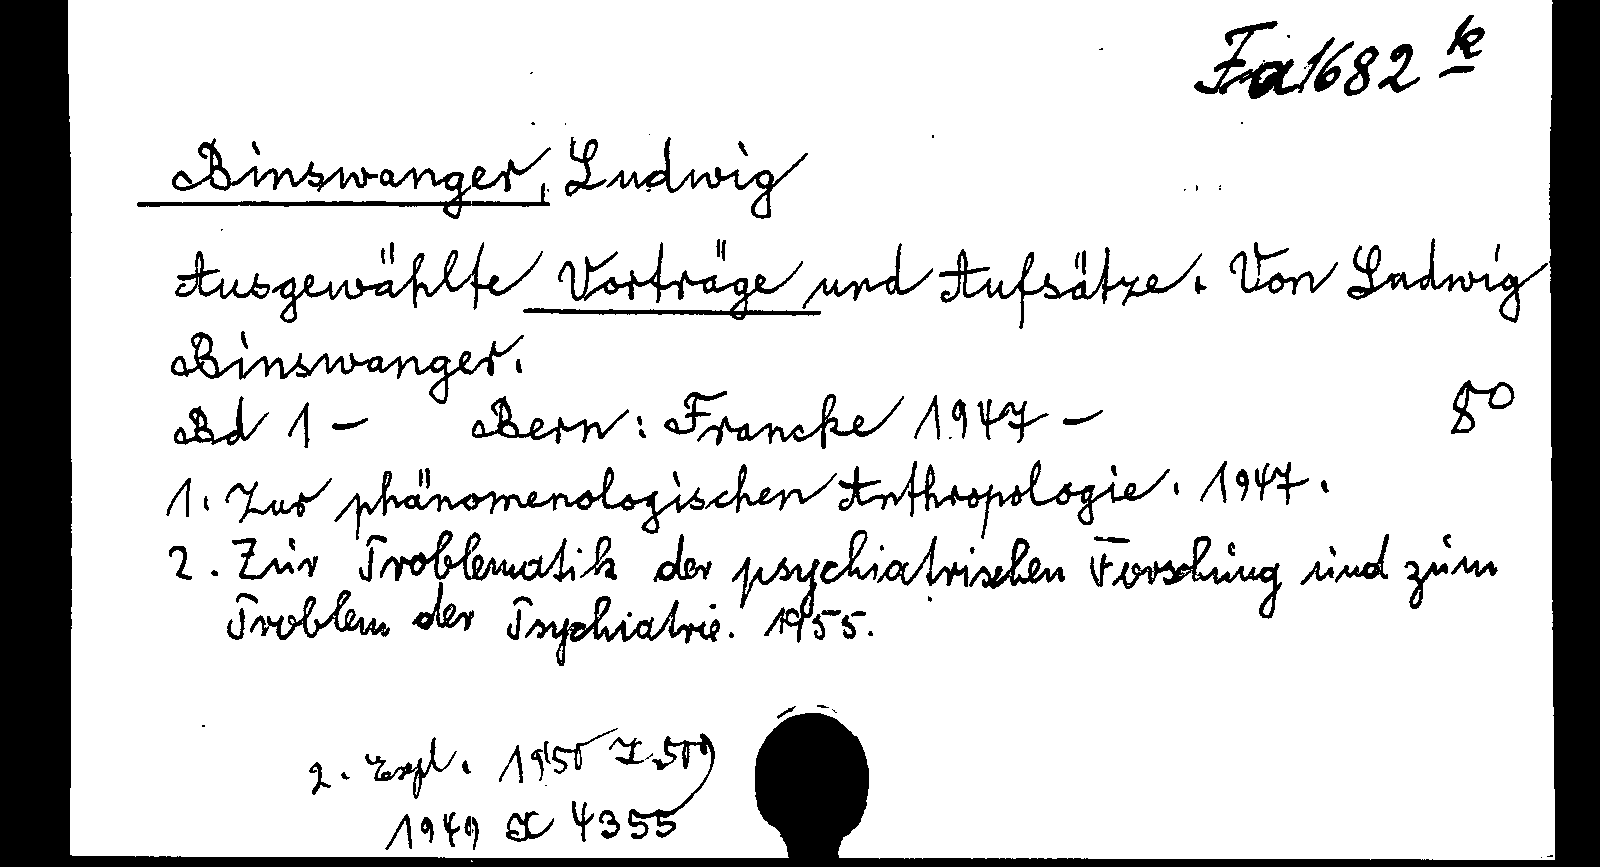 Fa 1682 k
Binswanger, Ludwig
Ausgewählte Vorträge und Aufsätze. Von Ludwig
Binswanger.
Bd 1 - Bern: Francke 1947 - 8°
1. Zur phänomenologischen Anthropologie. 1947.
2. Zur Problematik der psychiatrischen Forschung und zum
Problem der Psychiatrie. 1955.
2. Expl. 1950 509
1949 4355